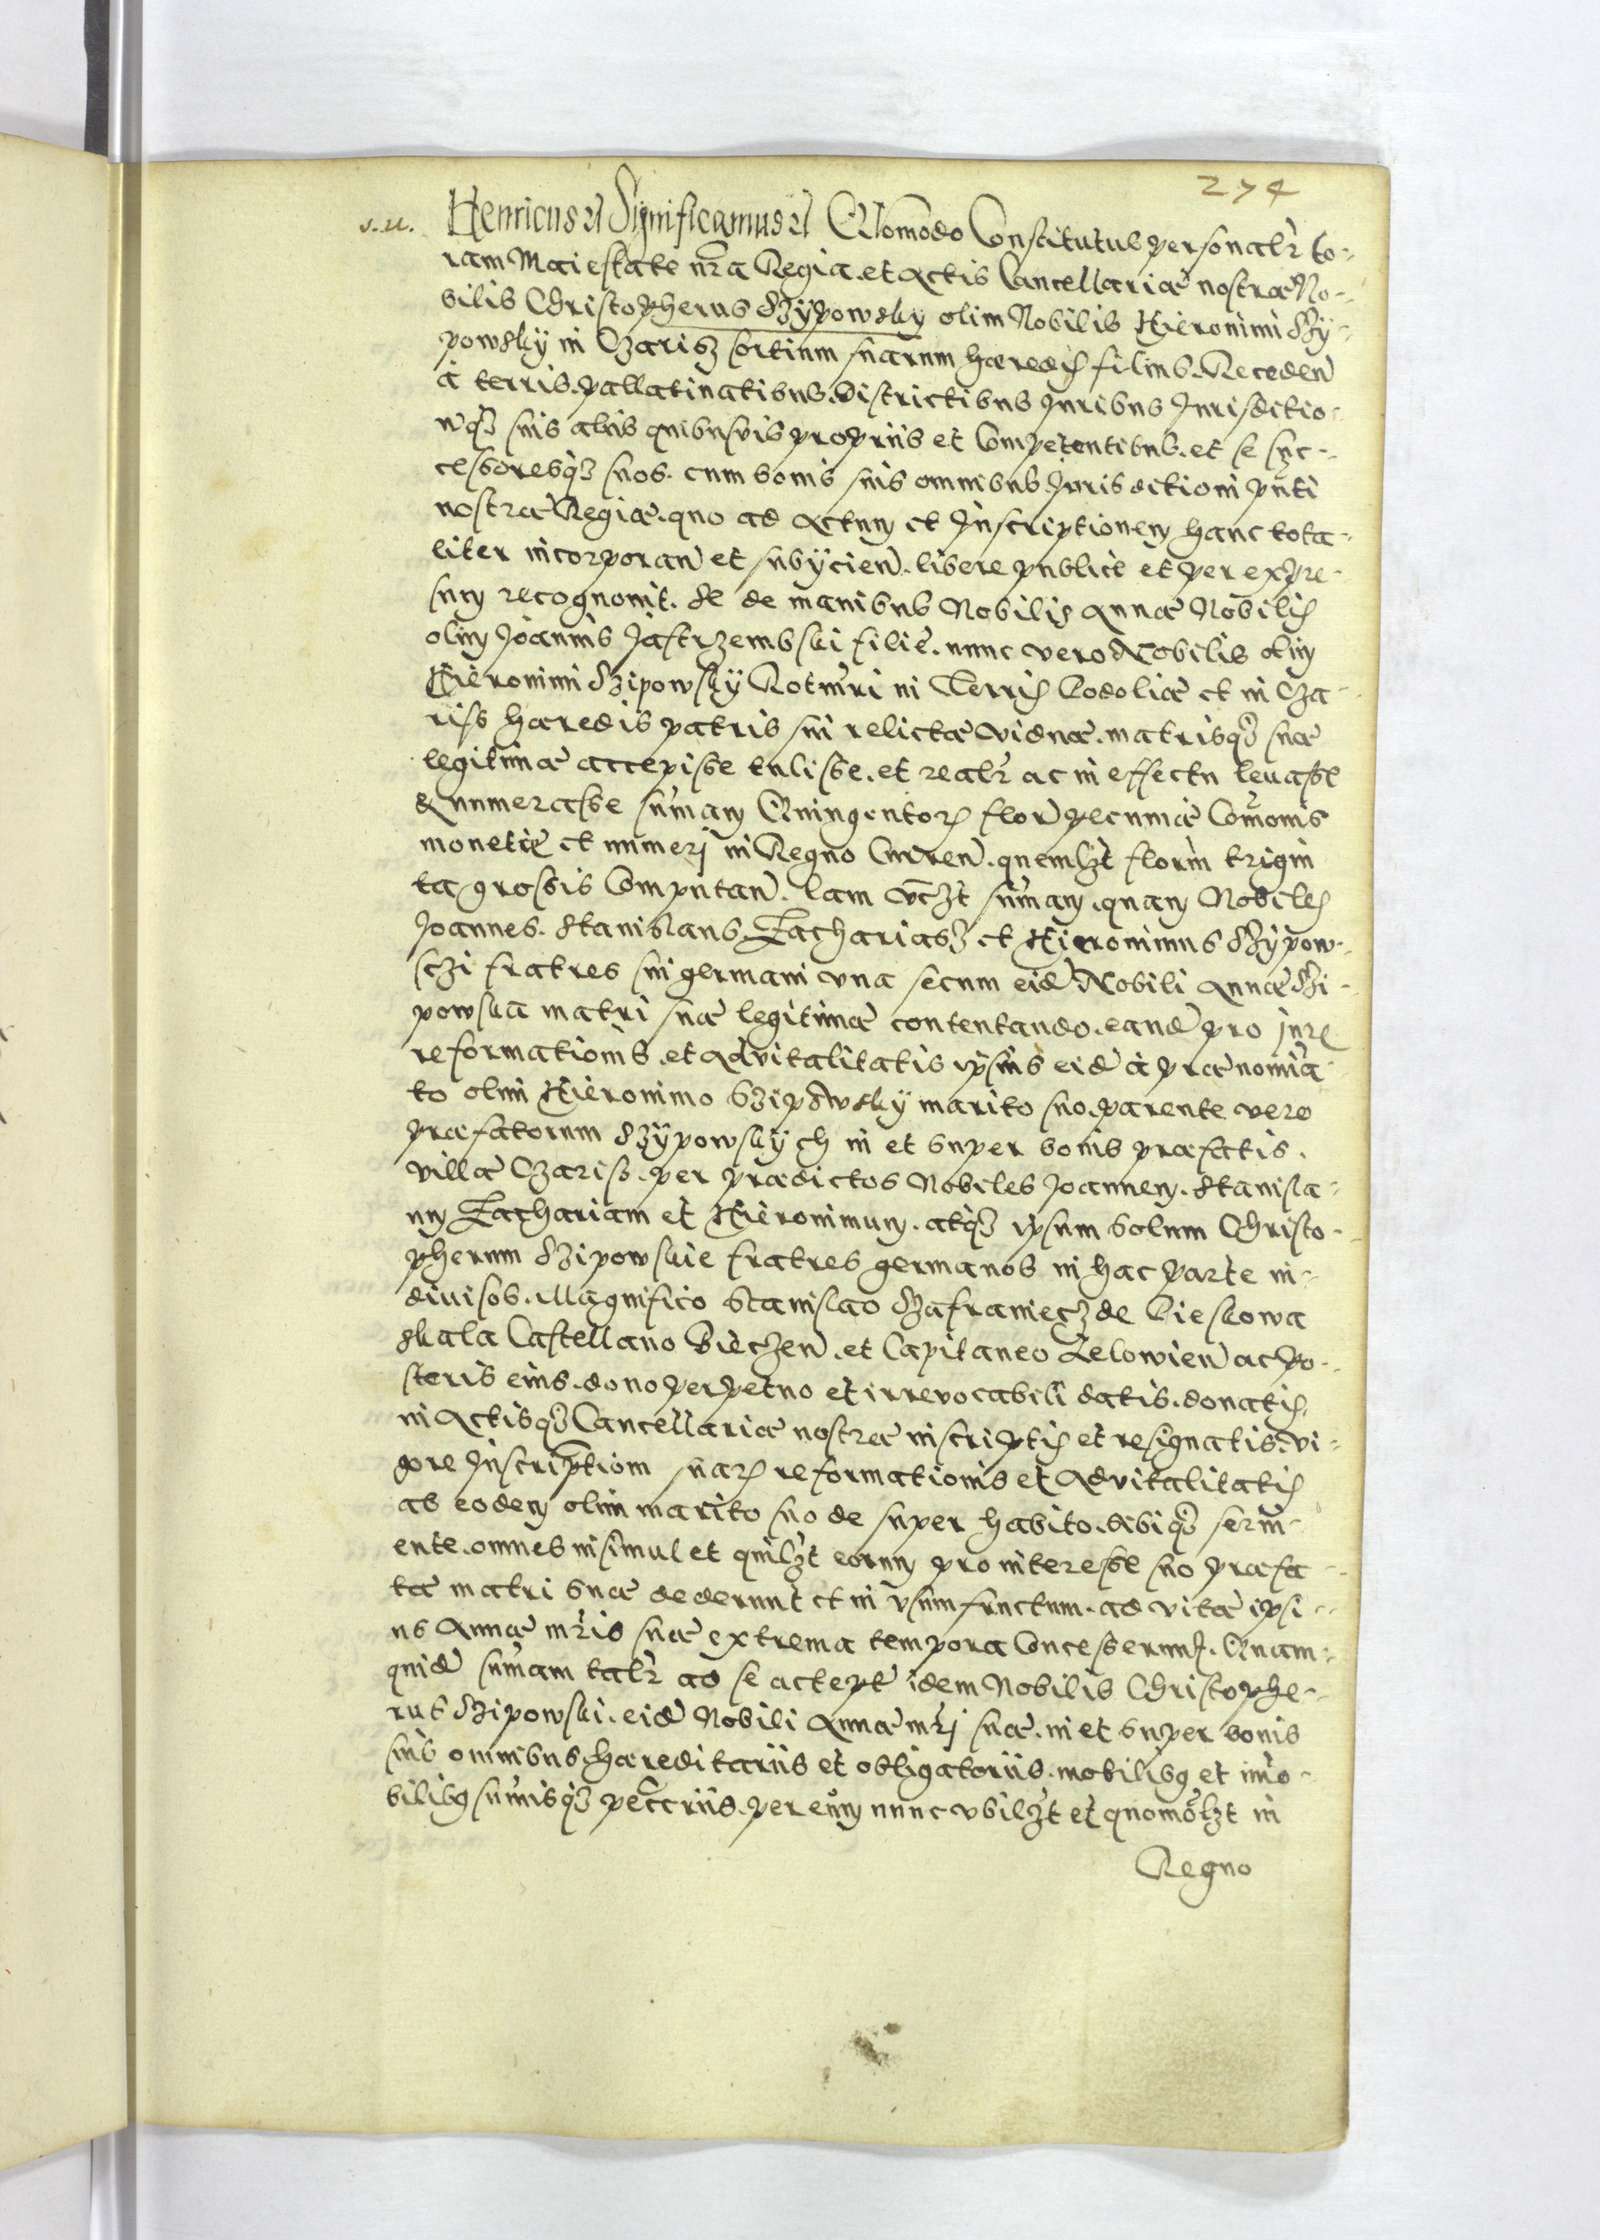 274
s. u. Henricus et Significamus et Quomodo Constitutus personalr co-
ram Maiestate nra Regia. et Actis Cancellariæ nostræ No-
bilis Christopherus Szÿpowskÿ olim Nobilis Hieronimi Szÿ-
powskÿ in Czarisz sortium suarum hæredis filius. Receden
à terris. pallatinatibus. districtibus Juribus Jurisditio-
nqз suis aliis quibusvis propriis et Competentibus. et se suc-
cessoresqз suos. cum bonis suis omnibus Jurisditioni pnti
nostræ Regiæ. quo ad Actum et Inscriptionem hanc tota-
liter incorporan et subÿcien. libere publicè et per expre-
sum recognovit. Se de manibus Nobilis Annæ Nobilis
olim Joannis Jastrzembski filiè. nunc vero Nobilis olim
Hieronimi Szipowskÿ Rotmri in Terris Podoliæ et in Cza-
riss hæredis patris sui relictæ viduæ. matrisqз suæ
legitimæ accepisse tulisse. et realr ac in effectu levasse
& numerasse summam Quingentor flor pecuniæ Comonis
monetæ et numerj in Regno Curren. quemlзt florin trigin
ta grossis Computan. Eam vclзt summam. quam Nobiles
Joannes. Stanislaus. Zachariasz et Hieronimus Szÿpow-
sczi fratres sui germani una secum eid Nobili Annæ Szi-
powska matri suæ legitimæ contentando. eand pro jure
reformationis. et Advitalitatis ipsius eid à prænomina
to olim Hieronimo Szipowskÿ marito suo. parente vero
præfatorum Szÿpowskÿch in et super bonis præfatis.
villæ Czariss. per prædictos Nobiles Joannem. Stanisla-
um Zachariam et Hieronimum. atqз ipsum solum Christo-
pherum Szipowskie fratres germanos in hac parte in-
divisos. Magnifico Stanislao Szafraniecz de Pieskowa
Skala Castellano Bieczen. et Capitaneo Lelowien ac po-
steris eius. dono perpetuo et irrevocabili datis. donatis.
in Actisqз Cancellariæ nostræ inscriptis et resignatis. vi-
gore Inscription suar reformationis et Advitalitatis
ab eodem olim marito suo de super habito. sibiqз servi-
ente. omnes insimul et quilзt eorum pro interesse suo præfa-
tæ matri suæ dederunt et in usumfructum. ad vitæ ipsi-
us Annæ mris suæ extrema tempora Concesserunt. Quam-
quid sumam talr ad se accept idem Nobilis Christophe-
rus Szipowski. eid Nobili Annæ mrj suæ. in et super bonis
suis omnibus hæreditariis et obligatoriis. mobilibq et imo-
bilibq sumisqз peccriis. per eum nunc ubilзt et quomolзt in
Regno